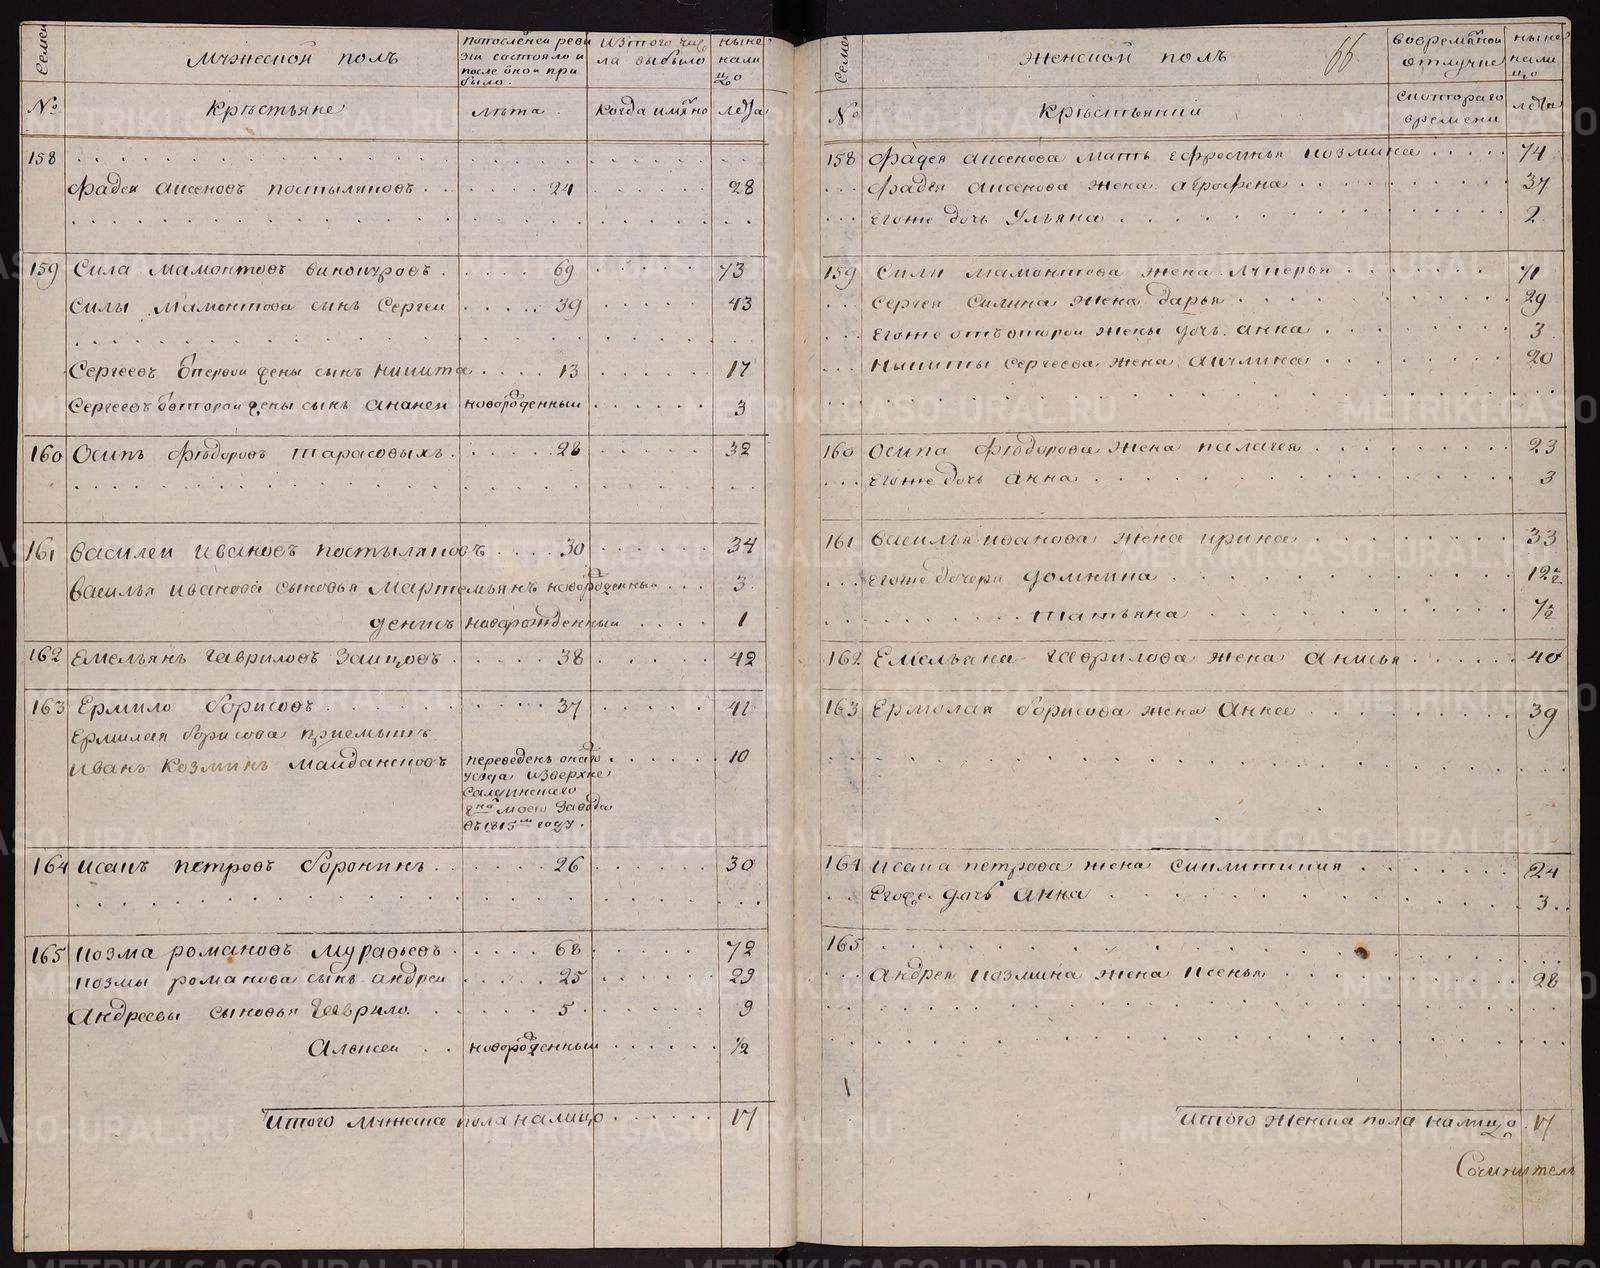 Семеи
Мужеской полъ
По последней реви
зіи состояло и
после оной при
было.
Из того чис
ла выбыло
Ныне
нали
цо
№
Крѣстьяне
Лѣта.
Когда имянно
Лета
158
Фадей Аксеновъ Костылявовъ 24 28
159 Сила Мамонтовъ Винокуровъ 69 73
Силы Мамонтова сынъ Сергеи 39 43
Сергеевъ от первой жены сынъ Никита 13 17
Сергеевъ от второй жены сынъ Ананеи новорожденныи 3
160 Осипъ Фѣдоровъ Тарасовыхъ 28 32
161 Василеи Ивановъ Костыляковъ 30 34
Василья Иванова сыновья Мартемьянъ новорожденныи 3
Денисъ новорожденныи 1
162 Емельянъ Гавриловъ Заицовъ 38 42
163 Ермило Борисовъ 37 41
Ермилая Борисова приемышъ
Иванъ Козминъ Маидансковъ 10
переведенъ
уезда из верхне
Салдинского
завода
въ 1815 году.
164 Исакъ Петровъ Воронинъ 26 30
165 Козма Романовъ Муравьевъ 68 72
Козмы Романова сынъ Андреи 25 29
Андреевы сыновья Гаврило 5 9
Алексеи новорожденныи 1/2
Итого мужеска пола на лицо 17
Семеи
Женской полъ
66
Во временной
отлучке
Ныне
нали
цо
№
Крѣстьянки
С которого
времени
Лета
158 Фадея Аксенова мать Ефросинья Козмина 74
Фадея Аксенова жена Агрофена 37
Его же дочь Ульяна 2
159 Силы Мамонтова жена Лукерья 71
Сергея Силина жена Дарья 29
Его же от второй жены дочь Анна 3
Никиты Сергеева жена Акулина 20
160 Осипа Фѣдорова жена Палагея 23
Его же дочь Анна 3
161 Василья Иванова жена Ирина 33
Его же дочери Домнина 12 1/2
Татьяна 7 1/2
162 Емельяна Гаврилова жена Анисья 40
163 Ермолая Борисова жена Анна 39
164 Исака Петрова жена Синлитикия 24
Его же дочь Анна 3
165
Андрея Козмина жена Ксенья 28
Итого женска пола на лицо 17
Сочинитель
METRIKI.GASO-URAL.RU